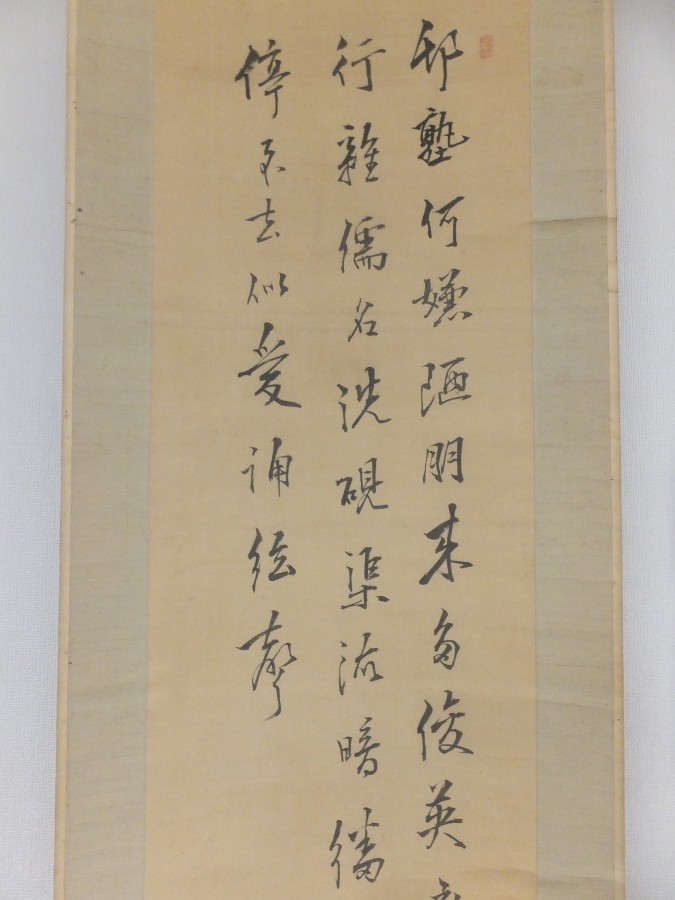 邨塾何嫌陋朋来多俊英
行雜儒名洗硯渠流暗繙
停不去似愛誦絃聲